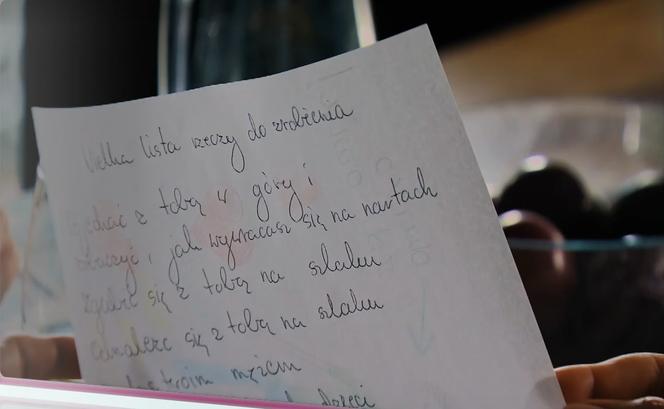 Wielka lista rzeczy do zrobienia
jechać z tobą w góry i
zobaczyć, jak wywracasz się na nartach
zgubić się z tobą na szlaku
odnaleźć się z tobą na szlaku
twoim mężem
dzieci